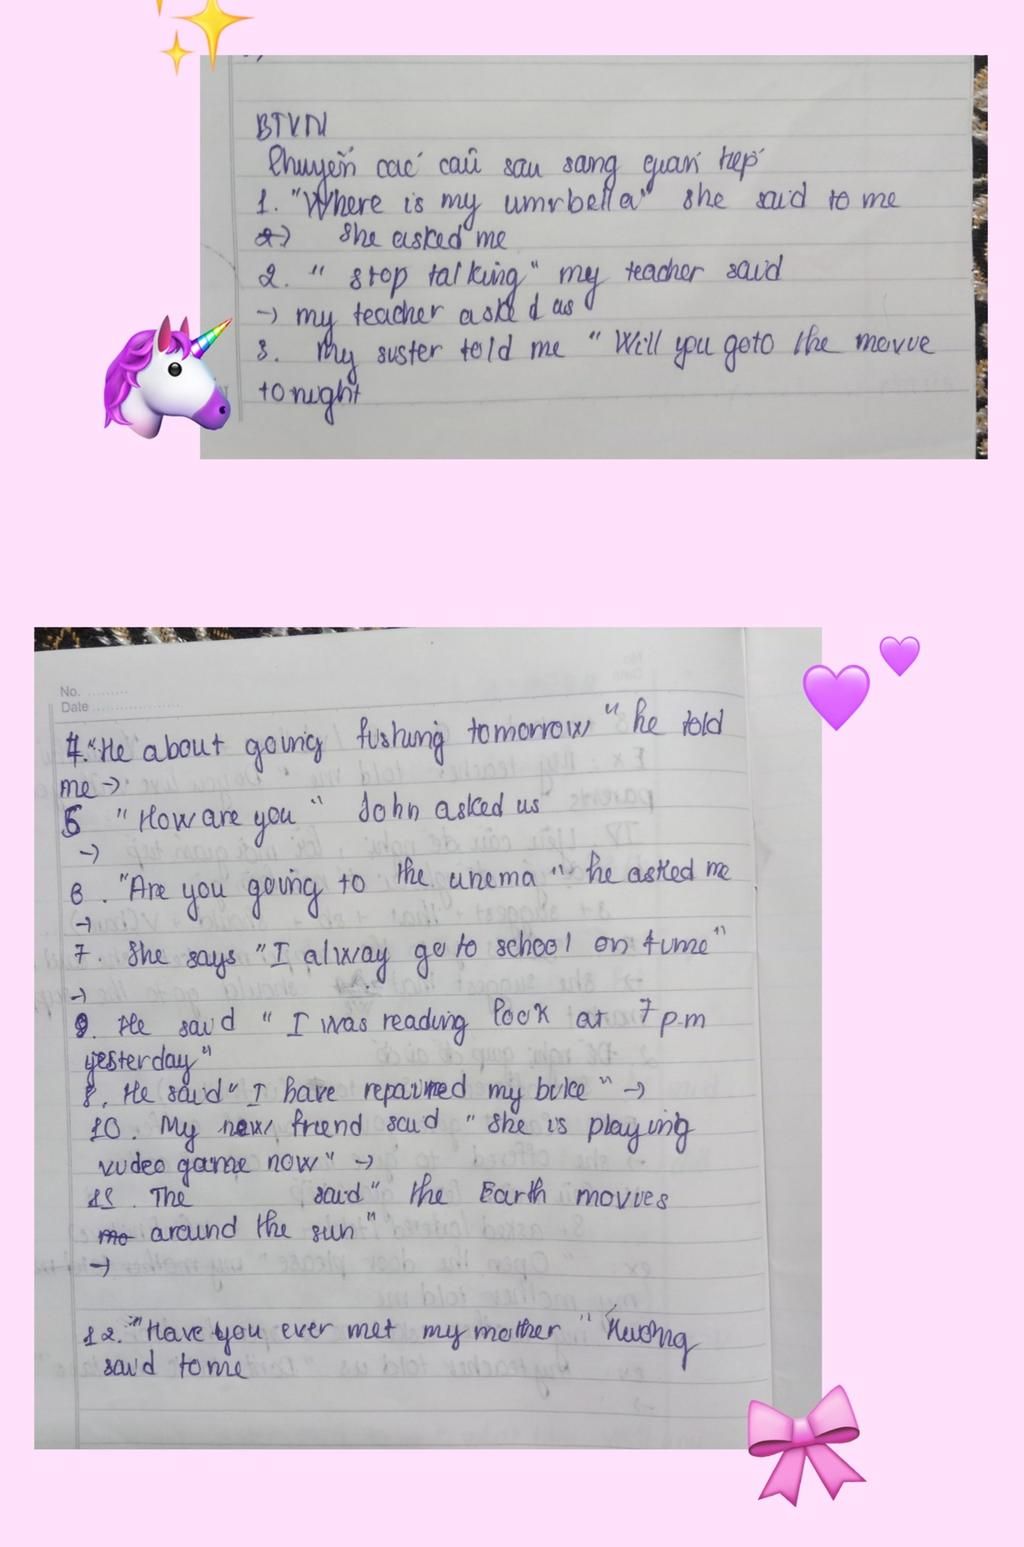 BTVN
Chuyển các câu sau sang quan tiếp
1. "Where is my umrbella" she said to me
→ She asked me
2. " stop talking" my teacher said
→ my teacher asked us
3. My sister told me " Will you goto the movie
tonight
No.
Date
4. "He about going fishing tomorrow" he told
me →
5 "How are you" John asked us
→
6. "Are you going to the cinema" he asked me
→
7. She says "I alway go to school on time"
→
9. He said " I was reading book at 7 p.m
yesterday"
8. He said "I have repaired my bike" →
10. My new friend said "She is playing
video game now" →
11. The said " the Earth movies
mo around the sun"
→
12. "Have you ever met my mother" Hương
said to me